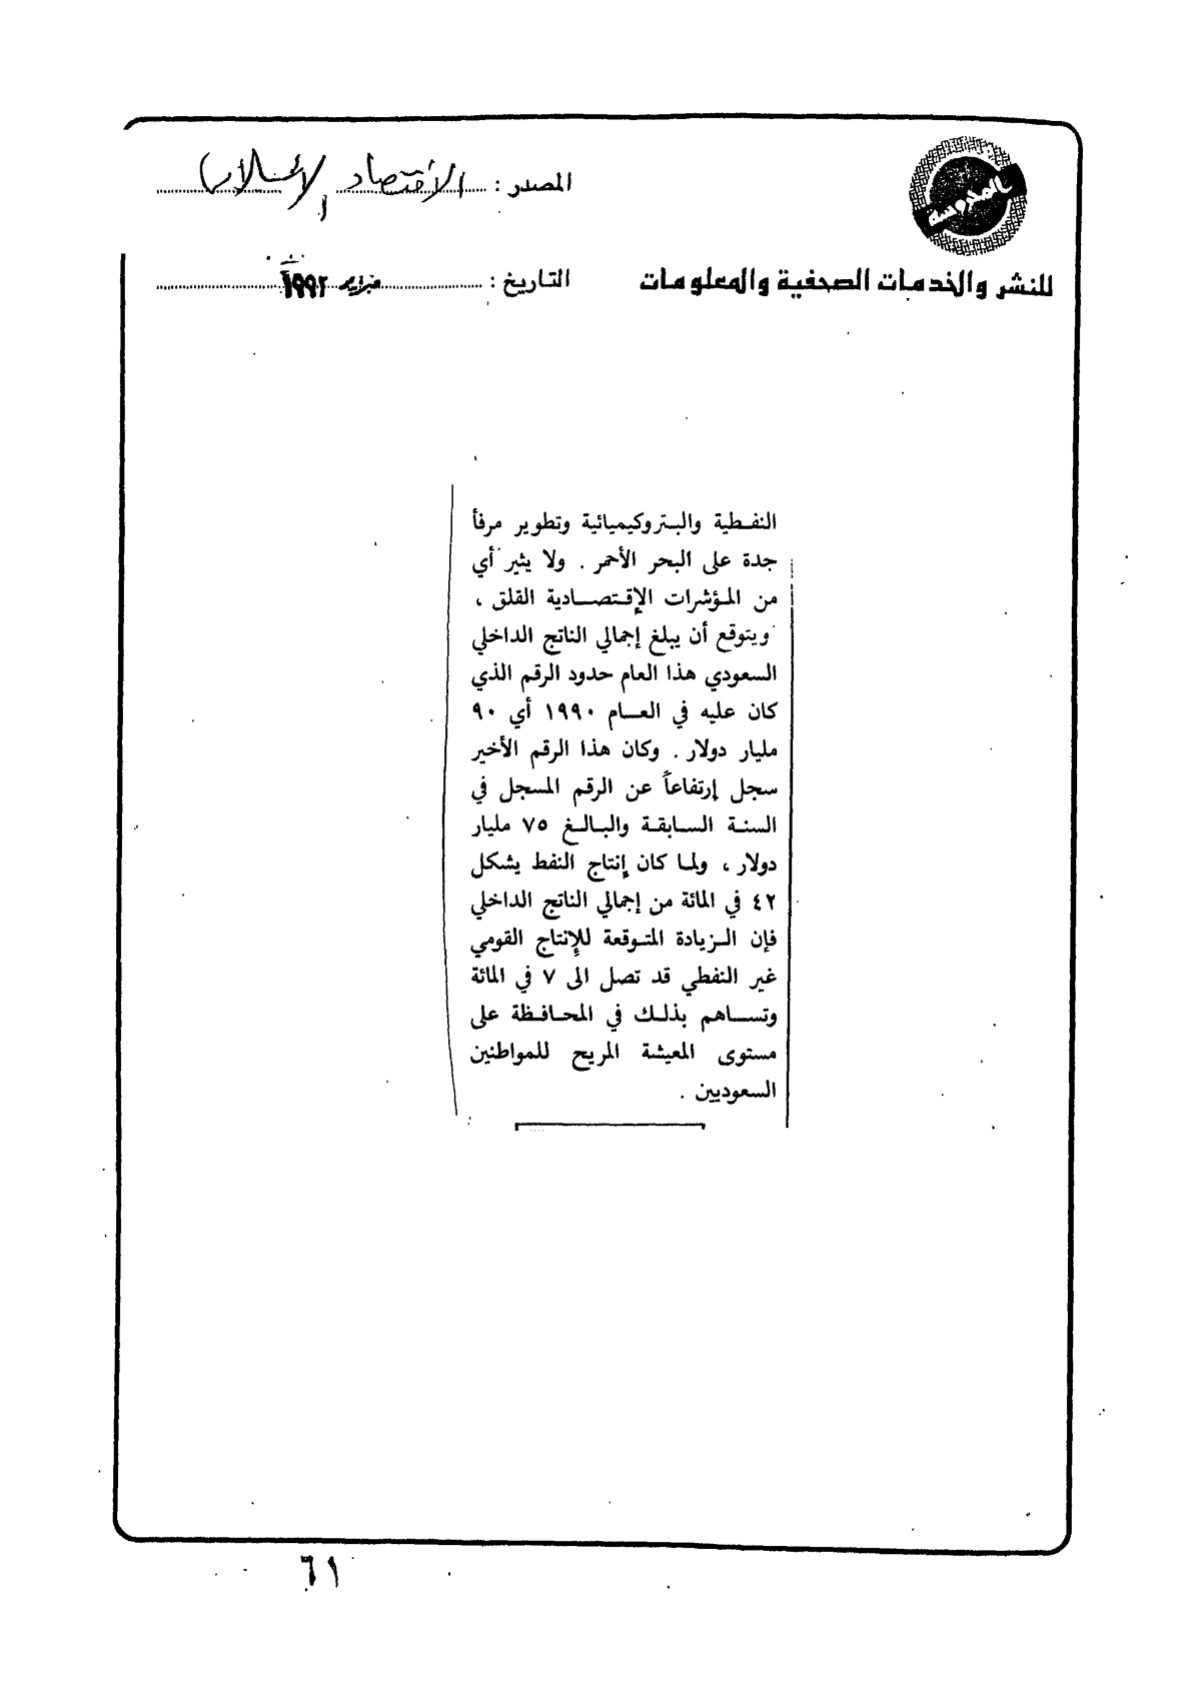 المصدر : الاقتصاد الإسلامي
المحروسة
للنشر والخدمات الصحفية والمعلومات
التاريخ : فبراير ١٩٩٢
النفطية والبتروكيميائية وتطوير مرفأ
جدة على البحر الأحمر . ولا يثير أي
من المؤشرات الإقتصادية القلق ،
ويتوقع أن يبلغ إجمالي الناتج الداخلي
السعودي هذا العام حدود الرقم الذي
كان عليه في العام ١٩٩٠ أي ٩٠
مليار دولار . وكان هذا الرقم الأخير
سجل إرتفاعاً عن الرقم المسجل في
السنة السابقة والبالغ ٧٥ مليار
دولار ، ولما كان إنتاج النفط يشكل
٤٢ في المائة من إجمالي الناتج الداخلي
فإن الزيادة المتوقعة للإنتاج القومي
غير النفطي قد تصل الى ٧ في المائة
وتساهم بذلك في المحافظة على
مستوى المعيشة المريح للمواطنين
السعوديين .
٦١